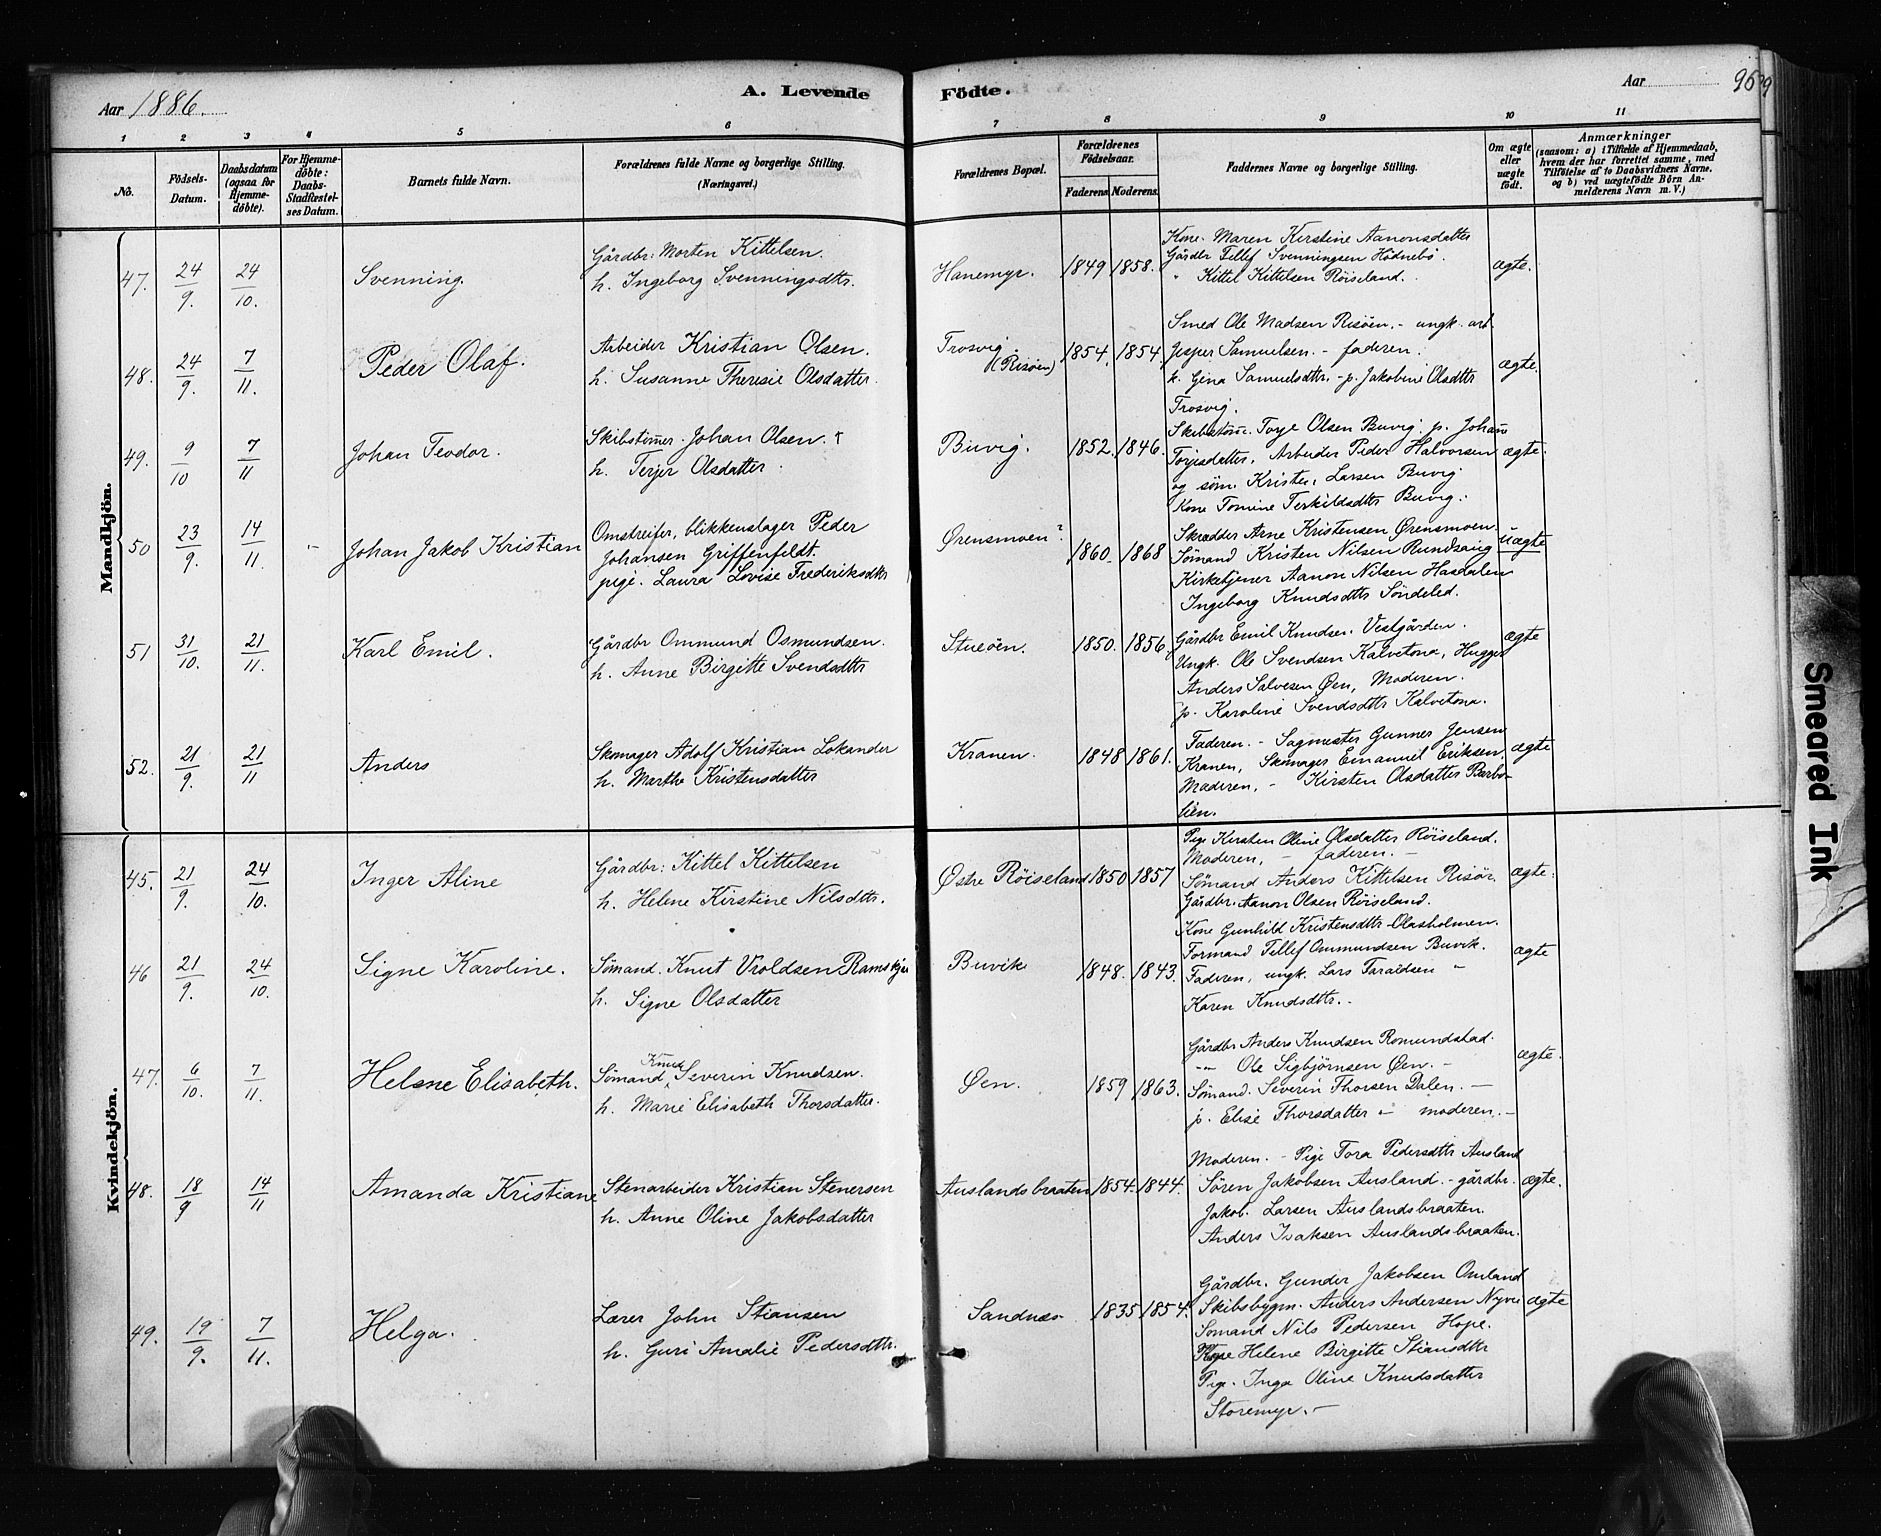 Aar 1886. A. Levende Födte. Aar 96
1 2 3 4 5 6 7 8 9 10 11
No. Födsels-Datum. Daabsdatum (ogsaa for Hjemme-döbte). For Hjemme-döbte: Daabs-Stadfæstel-ses Datum. Barnets fulde Navn. Forældrenes fulde Navne og borgerlige Stilling. (Næringsvei.) Forældrenes Bopæl. Forældrenes Födselsaar. Faderens. Moderens. Faddernes Navne og borgerlige Stilling. Om ægte eller uægte födt. Anmærkninger (saasom: a) i Tilfælde af Hjemmedaab, hvem der har forrettet samme, med Tilföielse af to Daabsvidners Navne, og b) ved uægtefödte Börn An-melderens Navn m. V.)
Mandkjön.
47. 24/9. 24/10. Svenning.
Gårdbr: Morten Kittelsen.
h. Ingeborg Svenningsdtr.
Hanemyr. 1849 1858.
Kone. Maren Kirstine Aanonsdatter
Gårdbr Tellef Svenningsen Hödnebö.
" Kittel Kittelsen Röiseland.
ægte.
48. 24/9. 7/11. Peder Olaf.
Arbeider Kristian Olsen.
h. Susanne Theresie Olsdatter.
Trosvig.
(Risöen) 1854. 1854.
Smed Ole Madsen Risöen. - ungk. arb.
Jesper Samuelsen. - faderen.
k. Gina Samuelsdtr. - p. Jakobine Olsdttr
Trosvig.
ægte.
49. 9/10 7/11 Johan Teodor.
Skibstömr. Johan Olsen.
h. Terjer Olsdatter.
Buvig. 1852. 1846.
Skibstöm. Torje Olsen Buvig. p. Johane
Torjesdatter. Arbeider Peder Halvorsen
og söm. Kristen Larsen Buvig
Kone Tomine Terkildsdtr Buvig.
ægte.
50 23/9. 14/11. Johan Jakob Kristian
Omstreifer, blikkenslager Peder
Johansen Griffenfeldt.
pige. Laura Lovise Frederiksdtr
Ørensmoen? 1860. 1868
Skrædder Arne Kristensen Ørensmoen.
Sömand Kristen Nilsen Rundsaug
Kirketjener Aanon Nilsen Hasdalen
Ingeborg Knudsdtr Söndeled.
Uægte
51 31/10. 21/11. Karl Emil.
Gårdbr Ommund Osmundsen.
h. Anne Birgitte Svendsdtr
Stueöen. 1850. 1856.
Gårdbr Emil Knudsen. Vestgården.
Ungk. Ole Svendsen Kalvetona, Hugger
Anders Salvesen Øen, Moderen.
p. Karoline Svendsdtr Kalvetona.
ægte
52. 21/9. 21/11 Anders
Skomager Adolf Kristian Lokander
h. Marthe Kristensdatter
Kranen. 1848 1861.
Faderen. - Sagmester Gunner Jensen
Kranen, Skomager Emanuel Eriksen,
Moderen, - Kirsten Olsdatter Barbo-
lien.
ægte
Kvindekjön.
45. 21/9. 24/10. Inger Aline
Gårdbr: Kittel Kittelsen
h. Helene Kirstine Nilsdtr.
Østre Röiseland 1850 1857
Pige Kirsten Oline Olsdatter Röiseland.
Moderen, - faderen. -
Sömand Anders Kittelsen Risör.
Gårdbr. Aanon Olsen Röiseland.
ægte.
46 21/9. 24/10. Signe Karoline.
Sömand. Knut Vroldsen Ramskjær
h. Signe Olsdatter
Buvik 1848. 1843.
Kone Gunhild Kristensdtr. Olasholmen.
Formand Tellef Ommundsen Buvik.
Faderen, ungk. Lars Taraldsen "
Karen Knudsdtr. -
ægte
47. 6/10. 7/11. Helene Elisabeth.
Knud
Sömand, Severin Knudsen.
h. Marie Elisabeth Thorsdatter.
Øen. 1859 1863.
Gårdbr Anders Knudsen Romundstad.
" Ole Sigbjörnsen Øen. -
Sömand. Severin Thorsen Dalen. -
p. Elise Thorsdatter - moderen. -
ægte.
48. 18/9 14/11 Amanda Kristiane
Stenarbeider Kristian Stenersen
h. Anne Oline Jakobsdatter
Auslandsbraaten 1854. 1844.
Moderen. - Pige Tora Pedersdtr Ausland
Sören Jakobsen Ausland. - gårdbr.
Jakob Larsen Auslandsbraaten.
Anders Isaksen Auslandsbraaten.
ægte.
49. 19/9. 7/11. Helga.
Lærer John Stiansen
h. Guri Amalie Pedersdtr.
Sandnes 1835 1854.
Gårdbr. Gunder Jakobsen Omland
Skibsbygm. Anders Andersen Nyvei
Sömand Nils Pedersen Hope.
Helene Birgitte Stiansdtr
Pige. Inga Oline Knudsdatter
Storemyr. -
ægte
Smeared Ink